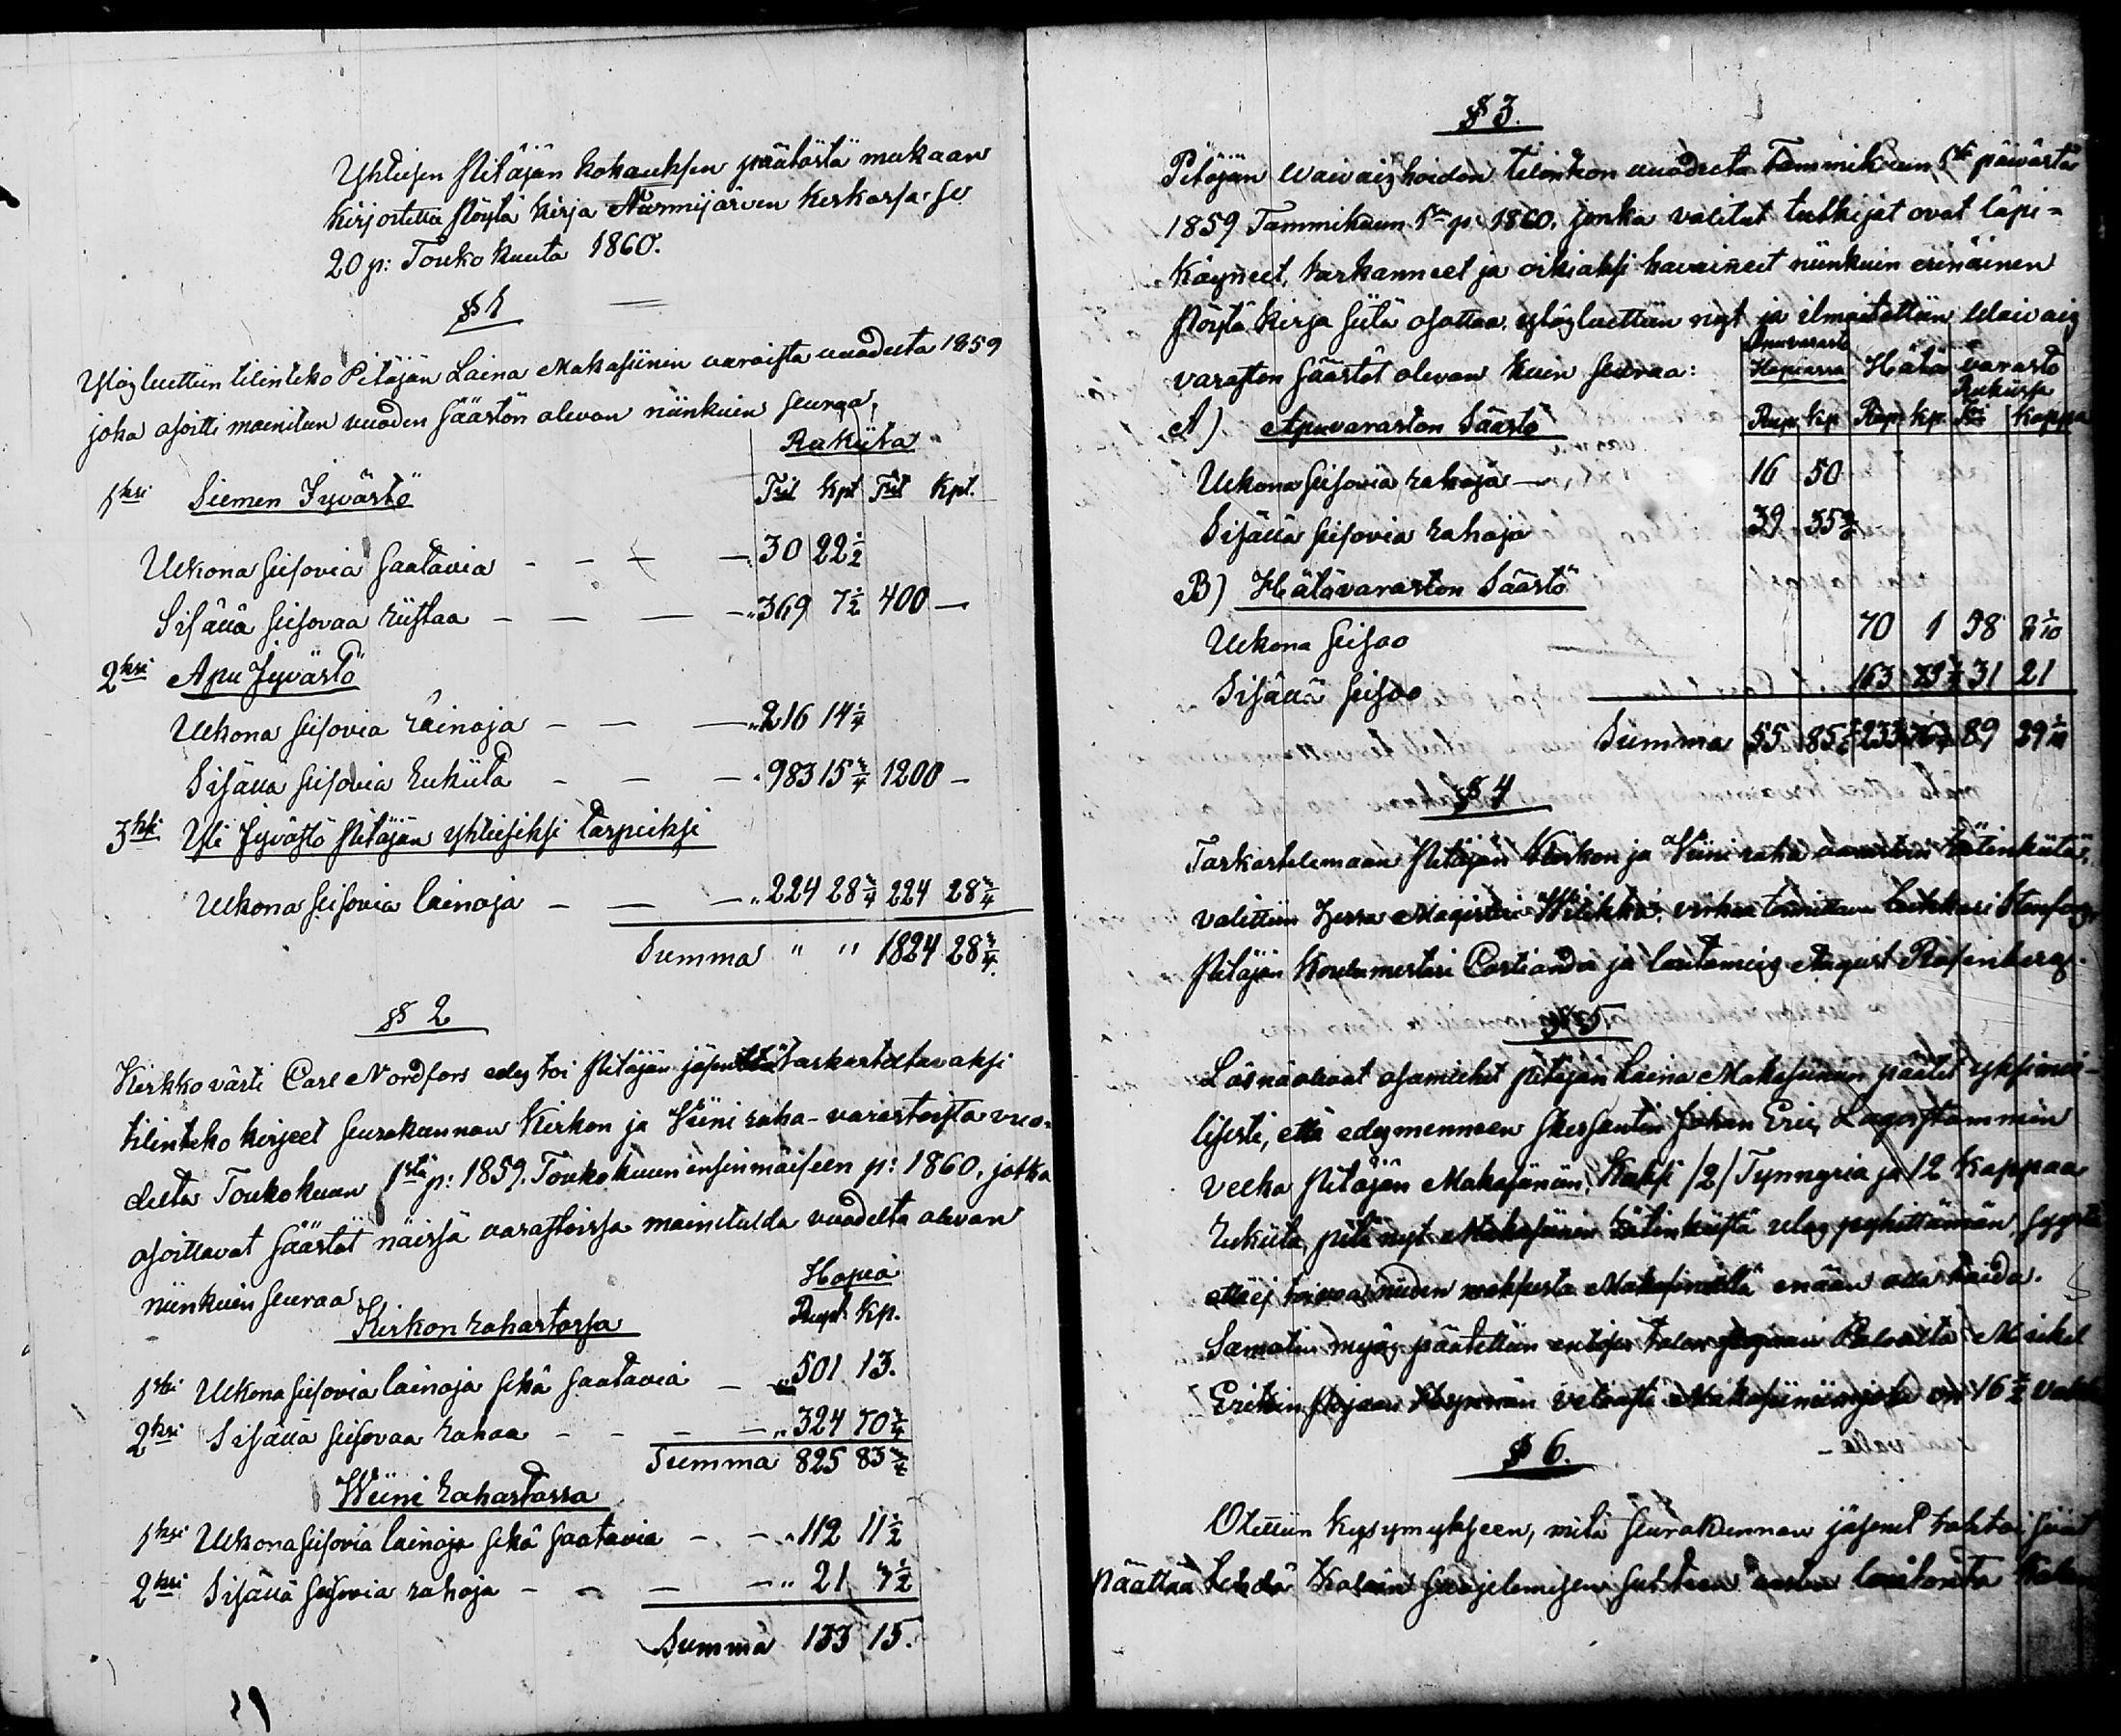 Yhteisen Pitäjän kokouksen päätöstä mukaan
kirjoitettu Pöytä kirja Nurmijärven kirkossa se
20 p: Touko kuuta 1860.
§ 1
Ylösluettiin tilinteko Pitäjän Laina Makasiinin varoista vuodesta 1859
joka osoitti mainitun vuoden säästön olevan niinkuin seuraa,
Rukiita
1ksi Siemen Jyvästö Tnl Kpt Tnl Kpt.
Ulkona seisovia saatavia — 30 22½
Sisällä seisovaa riistaa — 369 7½ 400 —
2ksi Apu Jyvästö
Ulkona seisovia lainoja — 216 14¼
Sisällä seisovia rukiita — 983 15¾ 1200 —
3ksi Yli Jyvästö Pitäjän yhteiseksi tarpeeksi
Ulkona seisovia lainoja — 224 28¾ 224 28¾
Summa " " 1824 28¾
§ 2
Kirkkovärti Carl Nordfors edes toi Pitäjän jäsenille tarkasteltavaksi
tilinteko kirjeet seurakunnan Kirkon ja Viini raha-varastoista vuo-
delta Toukokuun 1stä p: 1859. Toukokuun ensinmäiseen p: 1860, jotka
osoittavat säästöt näissä varastoissa mainitulda vuodelta olevan
niinkuin seuraa
Hopea
Kirkon rahastossa Rupl. Kp.
1ksi Ulkona seisovia lainoja sekä saatavia — 501 13.
2ksi Sisällä seisovaa rahaa — 324 70¾
Summa 825 83¾
Wiini rahastossa
1ksi Ulkona seisovia lainoja sekä saatavia — 112 11½
2ksi Sisällä seisovia rahoja — 21 3½
Summa 133 15.
§ 3.
Pitäjän waivaishoidon tilinteon vuodesta Tammikuun 1stä päivästä
1859 Tammikuun 1 p. 1860, jonka valitut tutkijat ovat läpi-
käyneet, tarkanneet ja oikiaksi havaineet niinkuin erinäinen
Pöytä kirja siitä osottaa, ylösluettiin nyt ja ilmoitettiin Waivais
varaston säästöt olevan kuin seuraa:
Apuvarasto Hopiassa Hätä varasto Rukiissa
A) Apuvaraston Säästö Rup. kp Rup. kp. Kappa
Ulkona seisovia rahoja — 16 50
Sisällä seisovia rahoja 39 35
B) Hätävaraston Säästö
Ulkona seisoo 70 1 58
Sisällä seisoo 163 31 21
Summa 55 85 233 89 39
§ 4
Tarkastelemaan Pitäjän Kirkon ja Viini raha varastoin
valittiin Herra Magisteri virkaa toimittava lukkari
Pitäjän Koulumestari ja lautamies August Rosenberg.
§ 5
Läsnäolevat osamiehet Pitäjän Laina Makasiinin päätit yksimie-
lisesti, että edesmenneen Johan Eric Lagerstammin
velka Pitäjän Makasiiniin, Kaksi /2/ Tynnyria ja 12 Kappaa
rukiita, pitä nyt Makasiinin ulos pyhittämän, syystä
ettei toivoa niiden maksusta Makasiinilla enään olla taida.
Samatin myös päätettiin entisen
Erikin pojan velasta Makasiiniin joka on 16½
§ 6.
Otettiin kysymykseen, mitä seurakunnan jäsenet
päättää tehdä suojelemisen suhteen